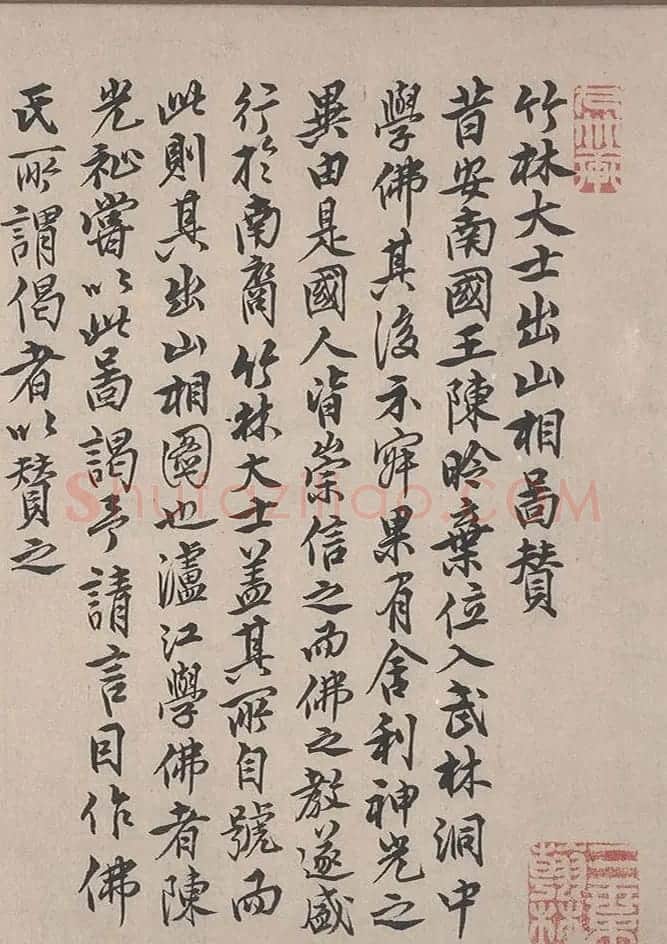 竹林大士出山相啚賛
昔安南國王陳昑棄位入武林洞中
學佛其後示寂果有舍利神光之
異由是國人皆崇信之而佛之教遂盛
行於南裔竹林大士盖其所自號而
此則其出山相圖也瀘江學佛者陳
光祉嘗以此啚謁予請言因作佛
氏所謂偈者以賛之
Shufaziliao.COM